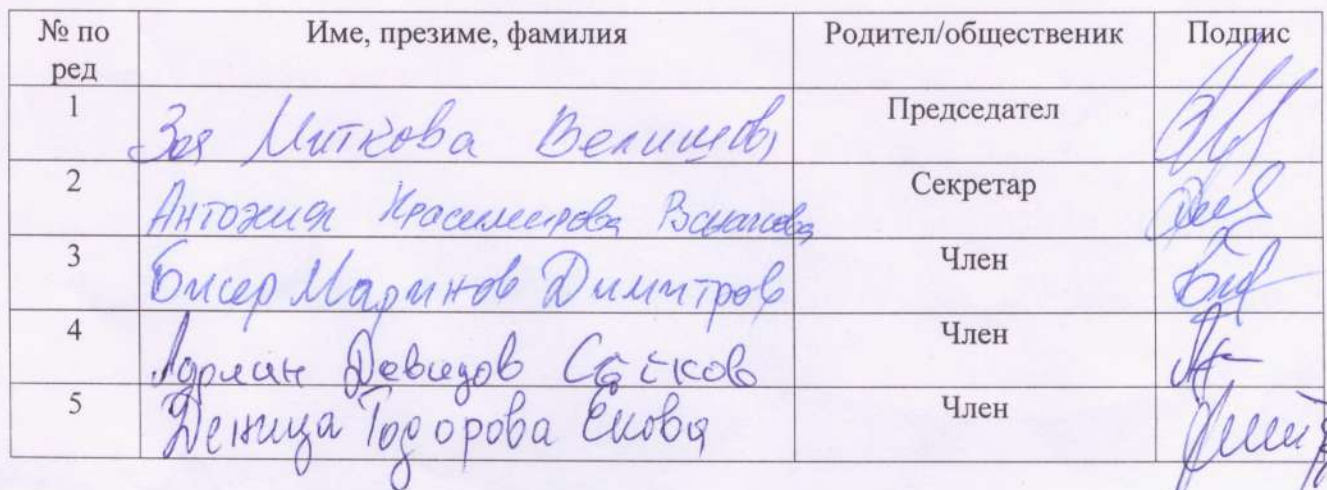 № по ред Име, презиме, фамилия Родител/общественик Подпис
1 Зоя Миткова Председател
2 Антония Красимирова Секретар
3 Бисер Маринов Димитров Член
4 Адриан Давидов Член
5 Деница Тодорова Екова Член